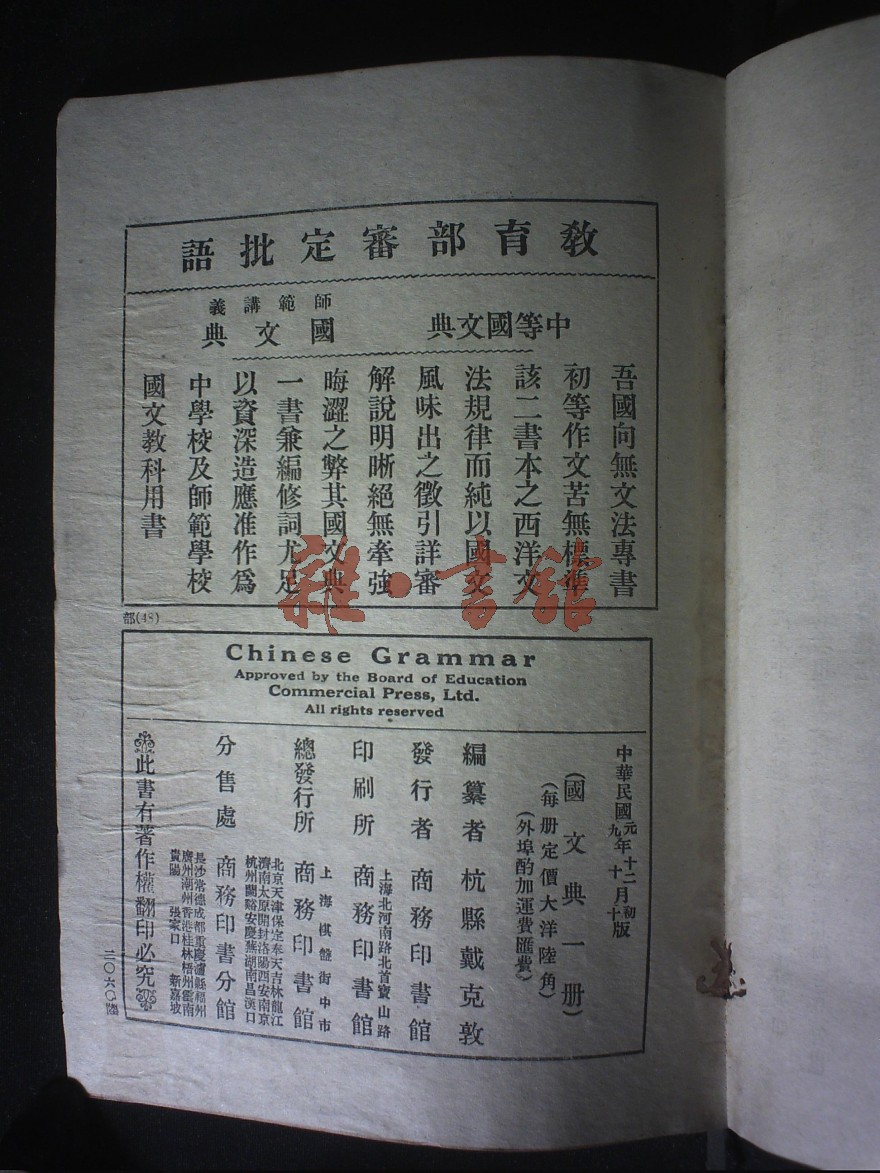 教育部審定批語
中等國文典
師範講義
國文典
吾國向無文法專書
初等作文苦無標準
該二書本之西洋文
法規律而純以國文
風味出之徵引詳審
解說明晰絕無牽強
晦澀之弊其國文典
一書兼編修詞尤足
以資深造應准作爲
中學校及師範學校
國文教科用書
部(48)
雜·書館
Chinese Grammar
Approved by the Board of Education
Commercial Press, Ltd.
All rights reserved
中華民國元年十二月初版
九年十月十版
(國文典一册)
(每册定價大洋陸角)
(外埠酌加運費匯費)
編纂者 杭縣戴克敦
發行者 商務印書館
上海北河南路北首寶山路
印刷所 商務印書館
上海棋盤街中市
總發行所 商務印書館
北京天津保定奉天吉林龍江
濟南太原開封洛陽西安南京
杭州蘭谿安慶蕪湖南昌漢口
分售處 商務印書分館
長沙常德成都重慶瀘縣福州
廣州潮州香港桂林梧州雲南
貴陽 張家口 新嘉坡
此書有著作權翻印必究
二〇六〇